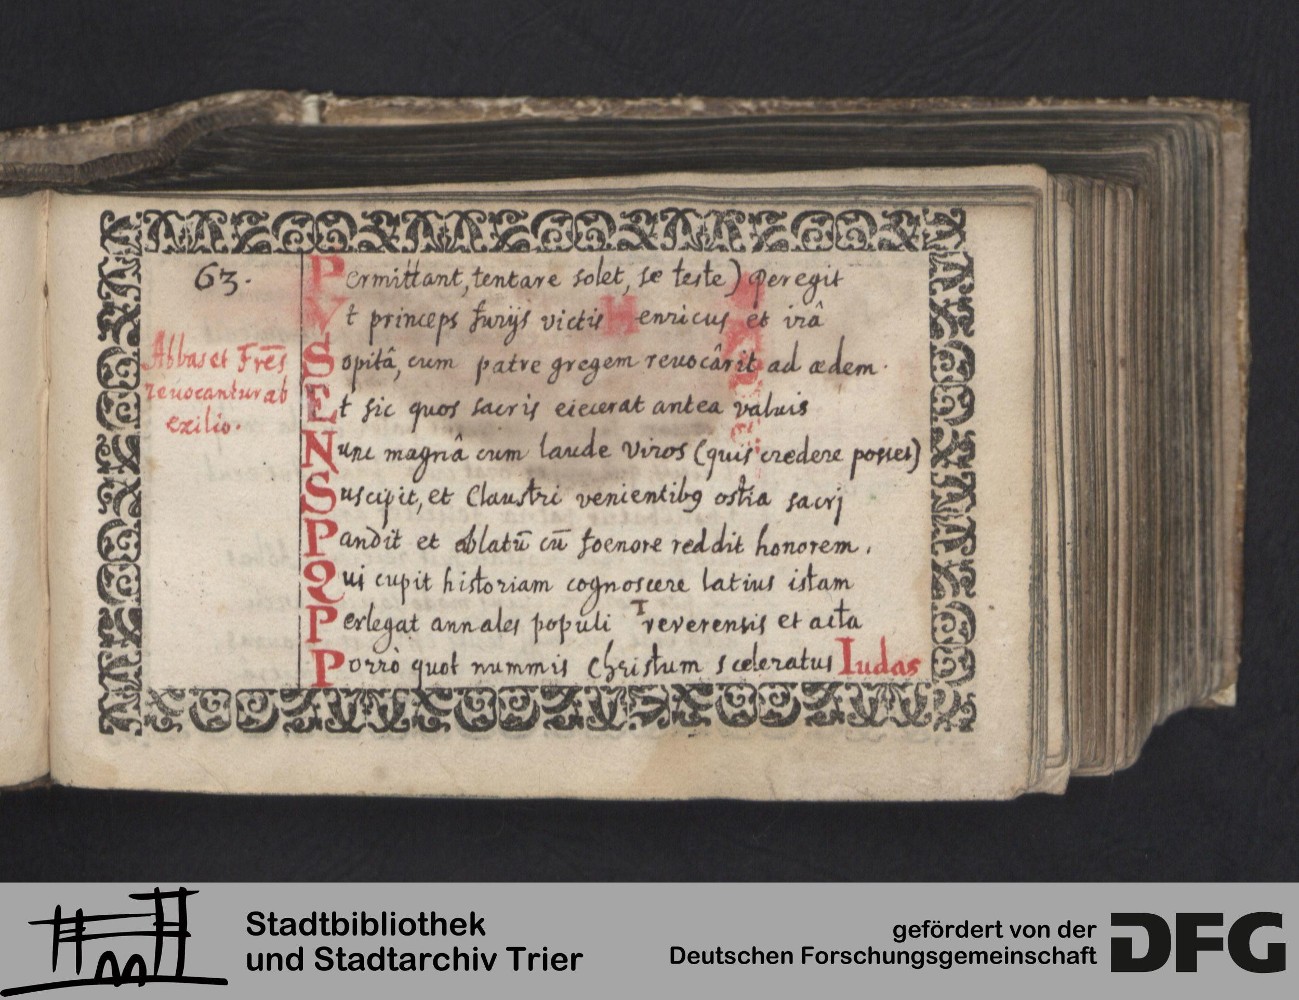 63.
Abbas et Frēs
reuocantur ab
exilio.
Permittant, tentare solet, se teste) peregit
Vt princeps furijs victis Henricus et irâ
Sopitâ, cum patre gregem reuocârit ad ædem.
Et sic quos sacris eiecerat antea valuis
Nunc magnâ cum laude viros (quis credere posset)
Suscipit, et Claustri venientibꝰ ostia sacrj
Pandit et ablatū cū foenore reddit honorem.
Qui cupit historiam cognoscere latius istam
Perlegat annales populi Treverensis et acta
Porrò quot nummis Christum sceleratus Iudas
Stadtbibliothek
und Stadtarchiv Trier
gefördert von der
Deutschen Forschungsgemeinschaft
DFG